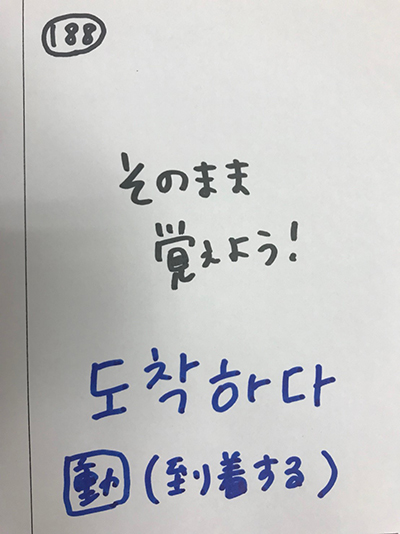 188
そのまま
覚えよう!
도착하다
動(到着する)